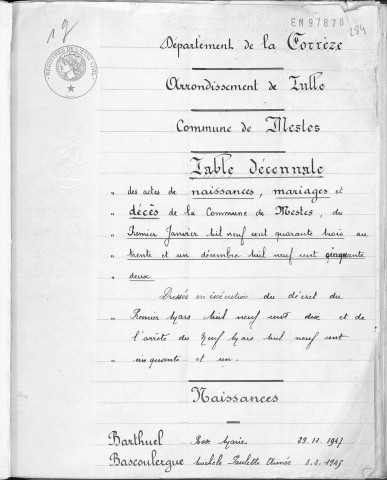 19
EM97878
284
Département de la Corrèze
Arrondissement de Tulle
Commune de Mestes
Table décennale
" des actes de naissances, mariages et
" décès de la Commune de Mestes, du
" Premier Janvier mil neuf cent quarante trois au
" trente et un décembre mil neuf cent cinquante
" deux
Dressée en exécution du décret du
" Premier Mars mil neuf cent dix et de
" l'arrêté du Neuf Mars mil neuf cent
" cinquante et un.
Naissances
Barthuel Rose Marie 29.12.1947
Bascoulergue Michèle Paulette Aimée 2.8.1945